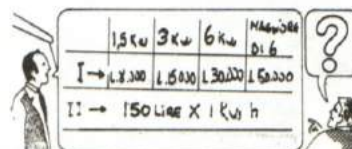 1,5 Kw 3 Kw 6 Kw MAGGIORE DI 6
I → L.8.000 L.15000 L.30.000 L.50.000
II → 150 LIRE X 1 Kw h
?